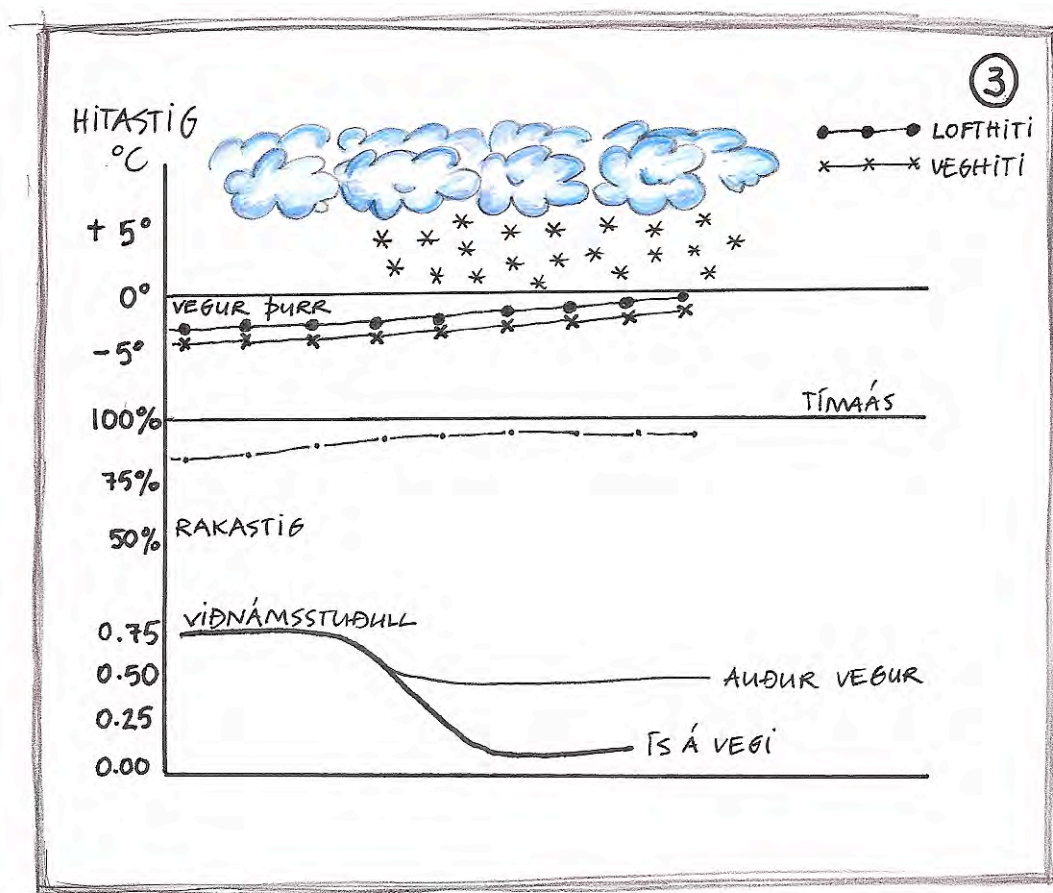 3
HITASTIG
°C
LOFTHITI
VEGHITI
+5°
0°
VEGUR ÞURR
-5°
TÍMAÁS
100%
75%
50%
RAKASTIG
VIÐNÁMSSTUÐULL
0.75
0.50
AUÐUR VEGUR
0.25
ÍS Á VEGI
0.00